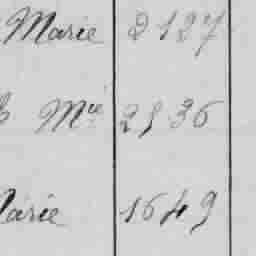 Marie 2127
Mie 2836
Marie 1649